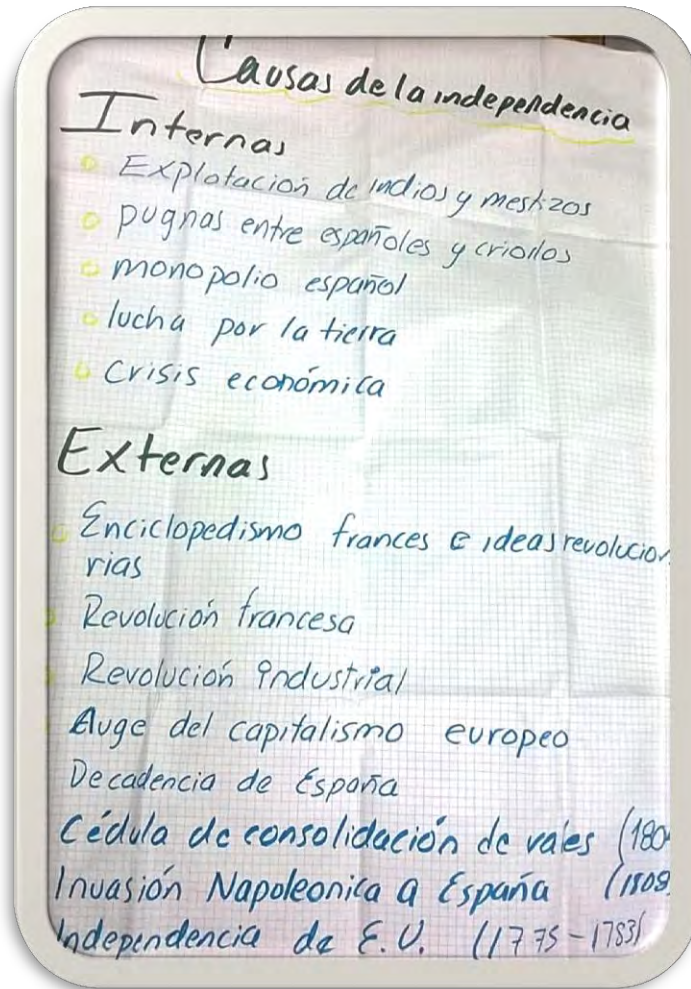 Causas de la independencia
Internas
Explotación de indios y mestizos
pugnas entre españoles y criollos
monopolio español
lucha por la tierra
Crisis económica
Externas
Enciclopedismo frances e ideas revolucion
rias
Revolución francesa
Revolución industrial
Auge del capitalismo europeo
Decadencia de España
Cédula de consolidación de vales (180
Invasión Napoleonica a España (1808
Independencia de E.U. (1775-1783)